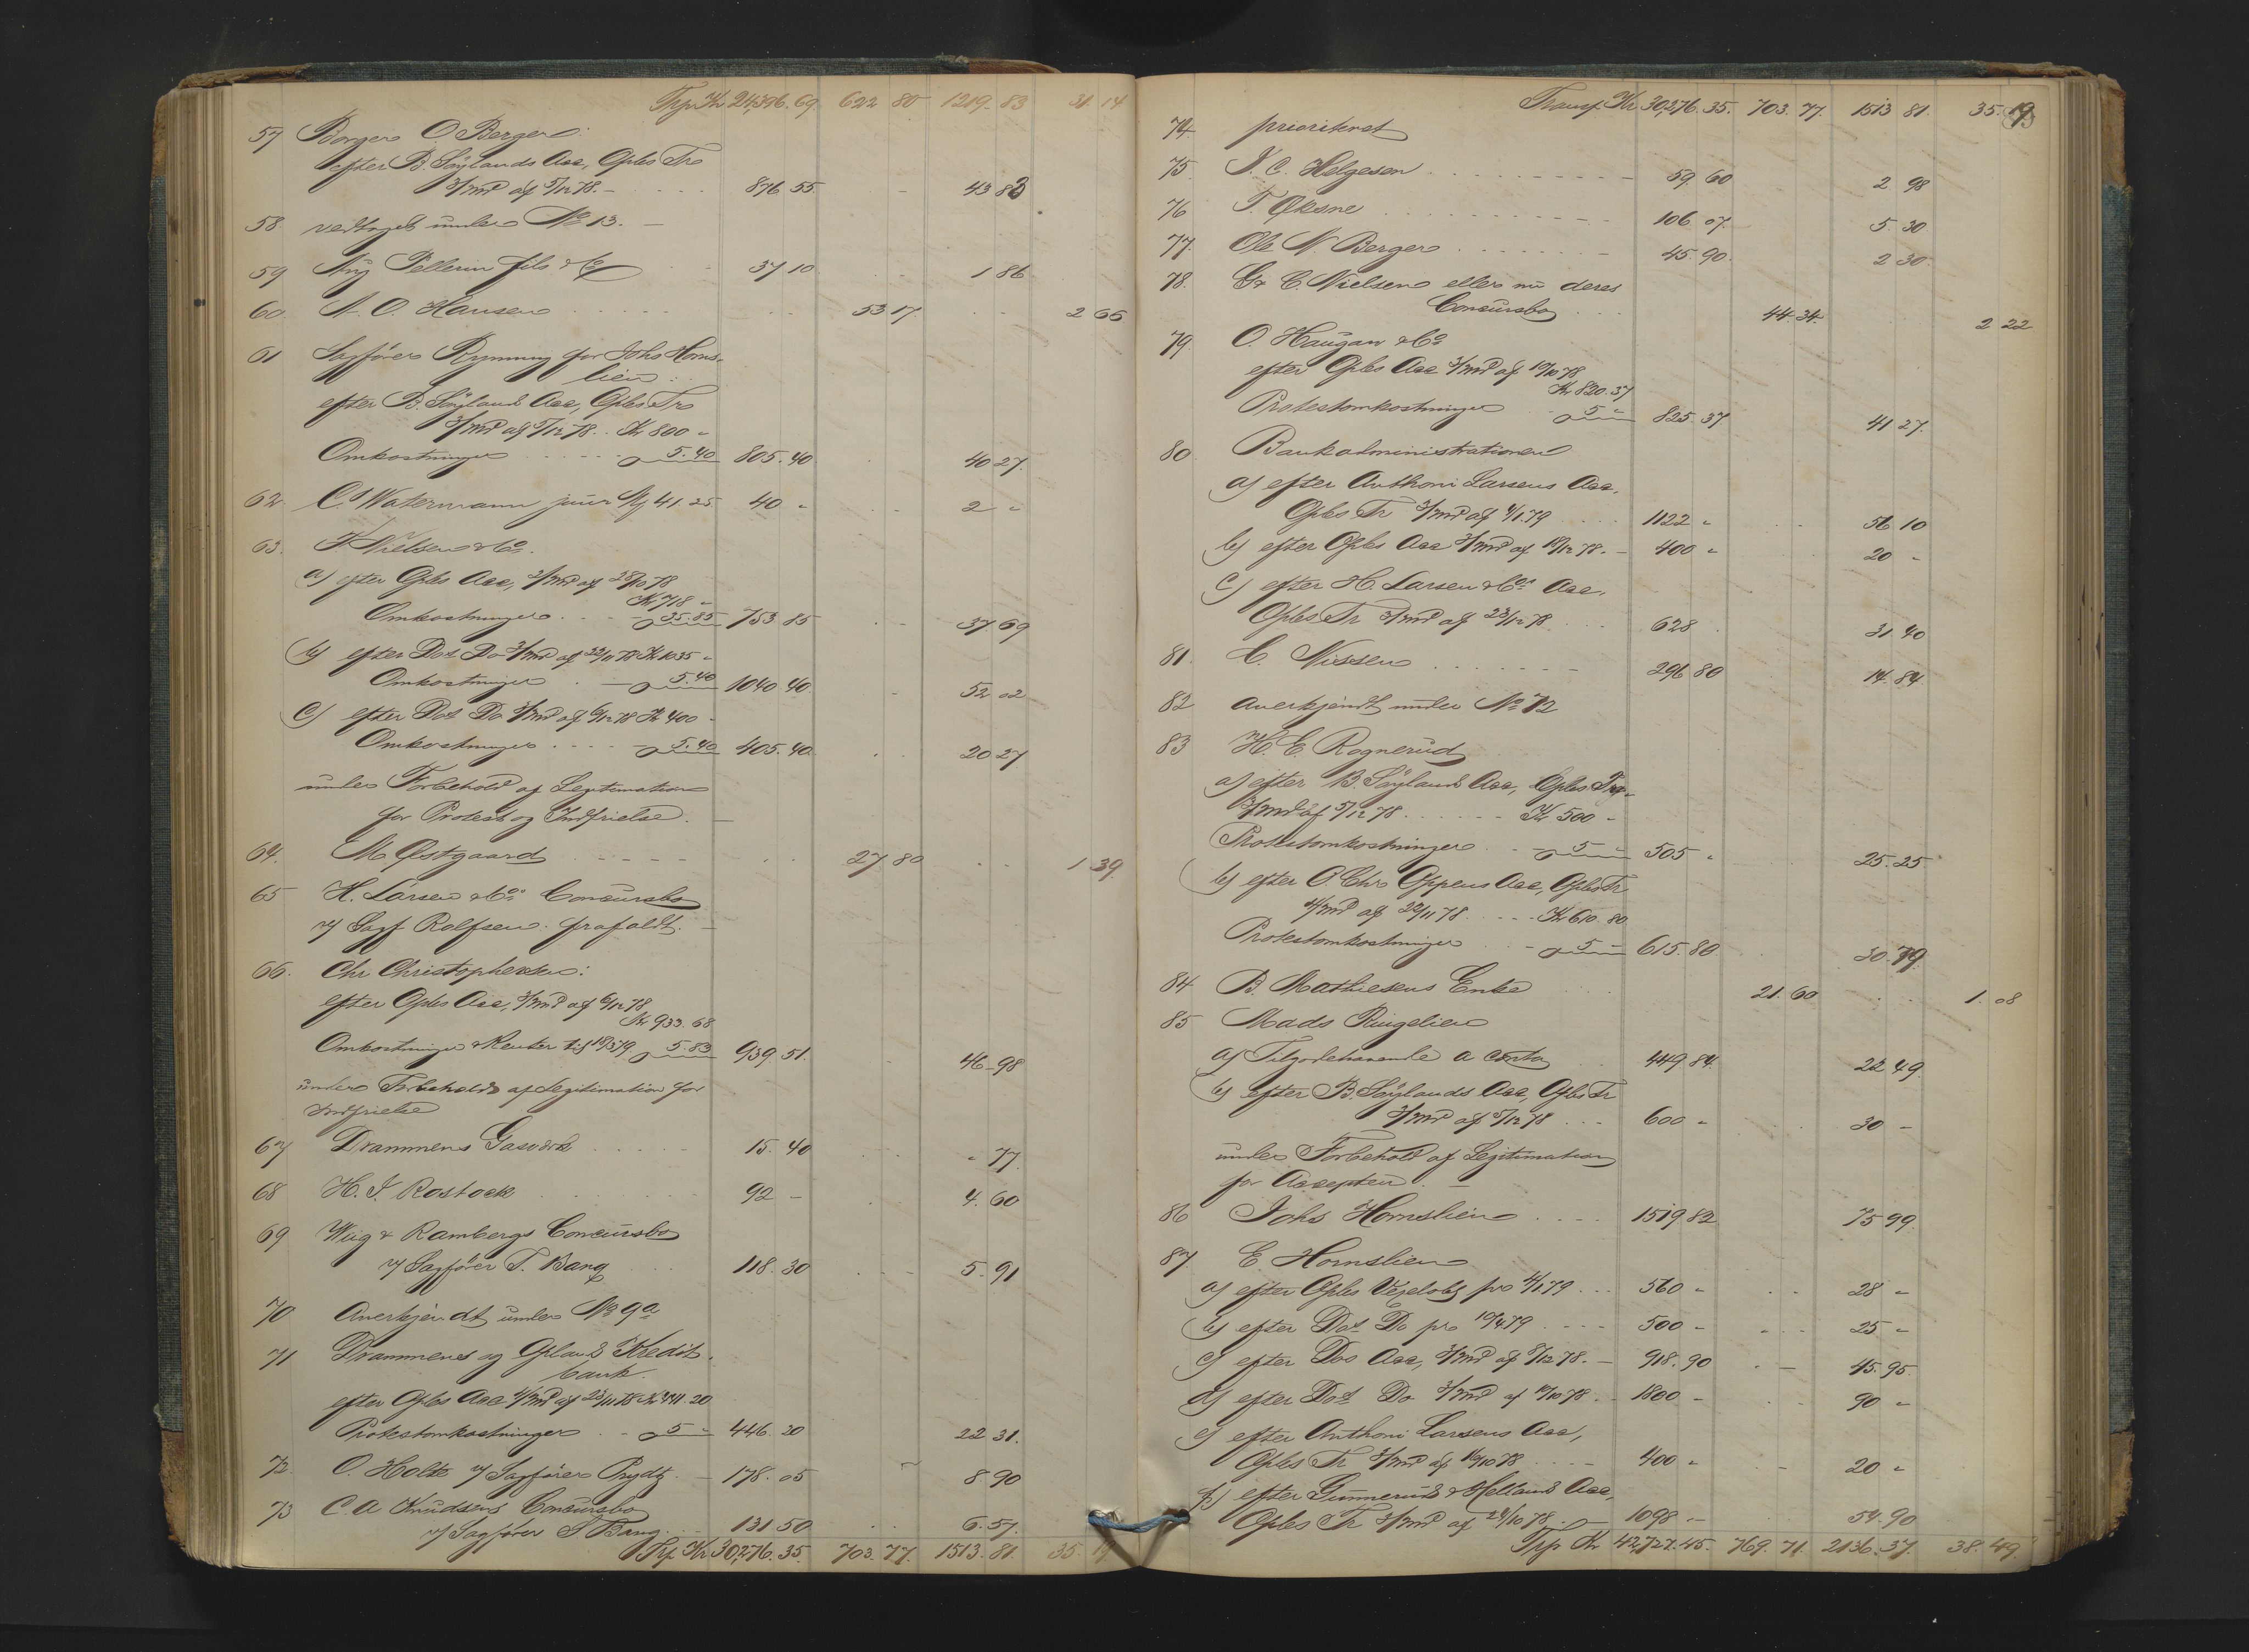 Trp Kr 24,396.69 622 80 1219.83 31 14
57 Borger O. Berger:
efter B. Søylands Acc, Opbs Tr
3/md af 5/12 78. - 876 55 43 83
58. vedtaget under No 13. -
59 Aug Pellerin fils & Co 37 10 1 86
60. A. O. Hansen 53 17 2 66
61 Sagfører Rynning for Johs Horns-
lien:
efter B. Søylands Acc, Opbs Tr
3/md af 5/12 78. Kr 800 -
Omkostninger 5.40 805.40 40 27.
62. C. Watermann junr Mk 41.25 40 - 2 -
63. F. Nielsen & Co.
a) efter Opbs Acc, 3/md af 28/10 78
Kr 718 -
Omkostninger 35.85 753 85 37 69
b) efter Dos Do 3/md af 22/11 78 Kr 1035 -
Omkostninger 5.40 1040 40 52 02
c) efter Dos Do 3/md af 6/12 78 Kr 400 -
Omkostninger 5.40 405.40 20 27
under Forbehold af Legitimation
for Protest og Indfrielse. -
64. M. Østgaard 27 80 1 39.
65 H. Larsen & Cos Concursbo
v/ Sagf Rolfsen. frafaldt. -
66. Chr Christophersen:
efter Opbs Acc, 3/md af 6/12 78
Kr 933.68
Omkostninger & Renter til 18/3 79 5.83 939.51. 46-98
under Forbehold af Legitimation for
Indfrielse
67 Drammens Gasværk 15.40 - 77.
68 H. I. Rostock 92 - 4.60
69 Wiig & Rambergs Concursbo
v/ Sagfører T. Bang 118.30 5.91
70 Anerkjendt under No 9a
71 Drammens og Oplands Kredit-
bank.
efter Opbs Acc 4/md af 23/11 78 Kr 441.20
Protestomkostninger 5 - 446.20 22 31.
72. O. Holte v/ Sagfører Prydtz. - 178.05 8.90
73 C. A Knudsens Concursbo
v/ Sagfører T Bang. 131 50 6.57.
Trp Kr 30,276.35. 703.77. 1513.81. 35.19
Transp. Kr 30,276.35. 703.77. 1513 81. 35.19
74. prioriteret
75. I. C. Helgesen 59 60 2 98
76 T. Øksne 106.07. 5.30
77. Ole N. Berger 45.90. 2 30.
78. Gr C. Nielsen eller nu deres
Concursbo 44.34. 2 22
79. O. Haugan & Co
efter Opbs Acc 3/md af 19/10 78
Kr 820.37
Protestomkostninger 5 - 825.37 41 27.
80 Bankadministrationen
a) efter Anthoni Larsens Acc,
Opbs Tr 3/md af 4/1.79 1122 - 56 10
b) efter Opbs Acc 3/md af 18/12 78. - 400 - 20 -
c) efter H. Larsen & Cos Acc.
Opbs Tr 3/md af 23/12 78 628 31.40
81. C. Nissen 296 80 14.84.
82 anerkjendt under No 72
83 H. E. Rognerud
a) efter B. Søylands Acc, Opbs Tr
3/md af 5/12 78. Kr 500 -
Protestomkostninger 5 - 505 - 25.25
b) efter O. Chr Oppens Acc, Opbs Tr
4/md af 22/11 78. Kr 610.80
Protestomkostninger 5 - 615.80 30.79.
84 B. Mathiesens Enke 21.60 1.08
85 Mads Ringelien
a) Tilgodehavende a conto 449 84. 22 49.
b) efter B. Søylands Acc, Opbs Tr
3/md af 5/12 78 600 - 30 -
under Forbehold af Legitimation
for Accepten. -
86 Johs Hornslien 1519 82 75 99.
87 E. Hornslien
a) efter Opbs Vexelobl pro 4/1.79 560 - 28 -
b) efter Dos Do pro 19/4.79 500 - 25 -
c) efter Dos Acc, 3/md af 9/12 78. - 918.90 45.95.
d) efter Dos Do 3/md af 19/10 78 1800 - 90 -
e) efter Anthoni Larsens Acc,
Opbs Tr 3/md af 16/10 78 400 - 20 -
f) efter Gunnerud & Mellands Acc,
Opbs Tr 3/md af 24/10 78. 1098 - 54.90
Trp Kr 42,727.45. 769.71. 2136.37. 38.49.